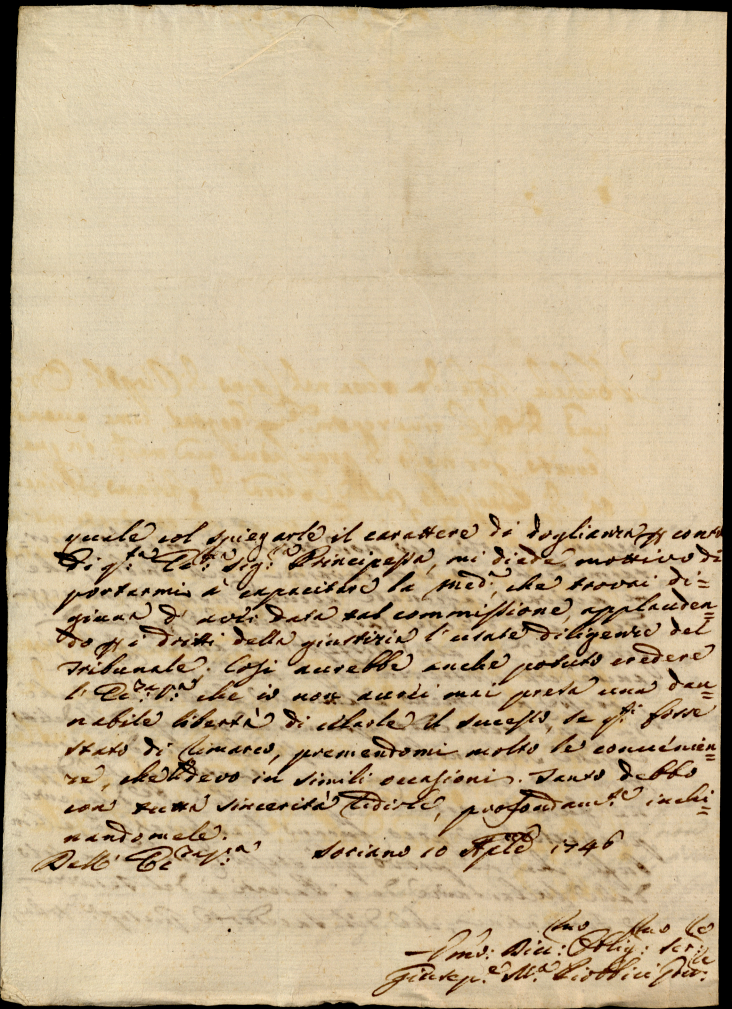 quale col spiegarle il carattere di doglianza p conto
di q.ta Ecc.ma Sig.ra Principessa, mi diede mottivo di
portarmi à capacitare la med.a, che trovai di=
giuna d' aver data tal commissione, applauden=
do p i dritti della giustizia l'usate diligenze del
Tribunale. Così aurebbe anche potuto credere
l' Ecc.za V.ra che io non aurei mai presa una dan=
nabile libertà di celarle il sucesso, se q.ti fosse
stato di rimarco, premendomi molto le convenien=
ze, che devo in simili occasioni. Tanto debbo
con tutta sincerità ridirle, profondam.te inchi=
nandomele.
Dell' Ecc.za V.ra Soriano 10 Aprile 1746
Umo: Div: Oblig: Ser:
Giusep.e M.a